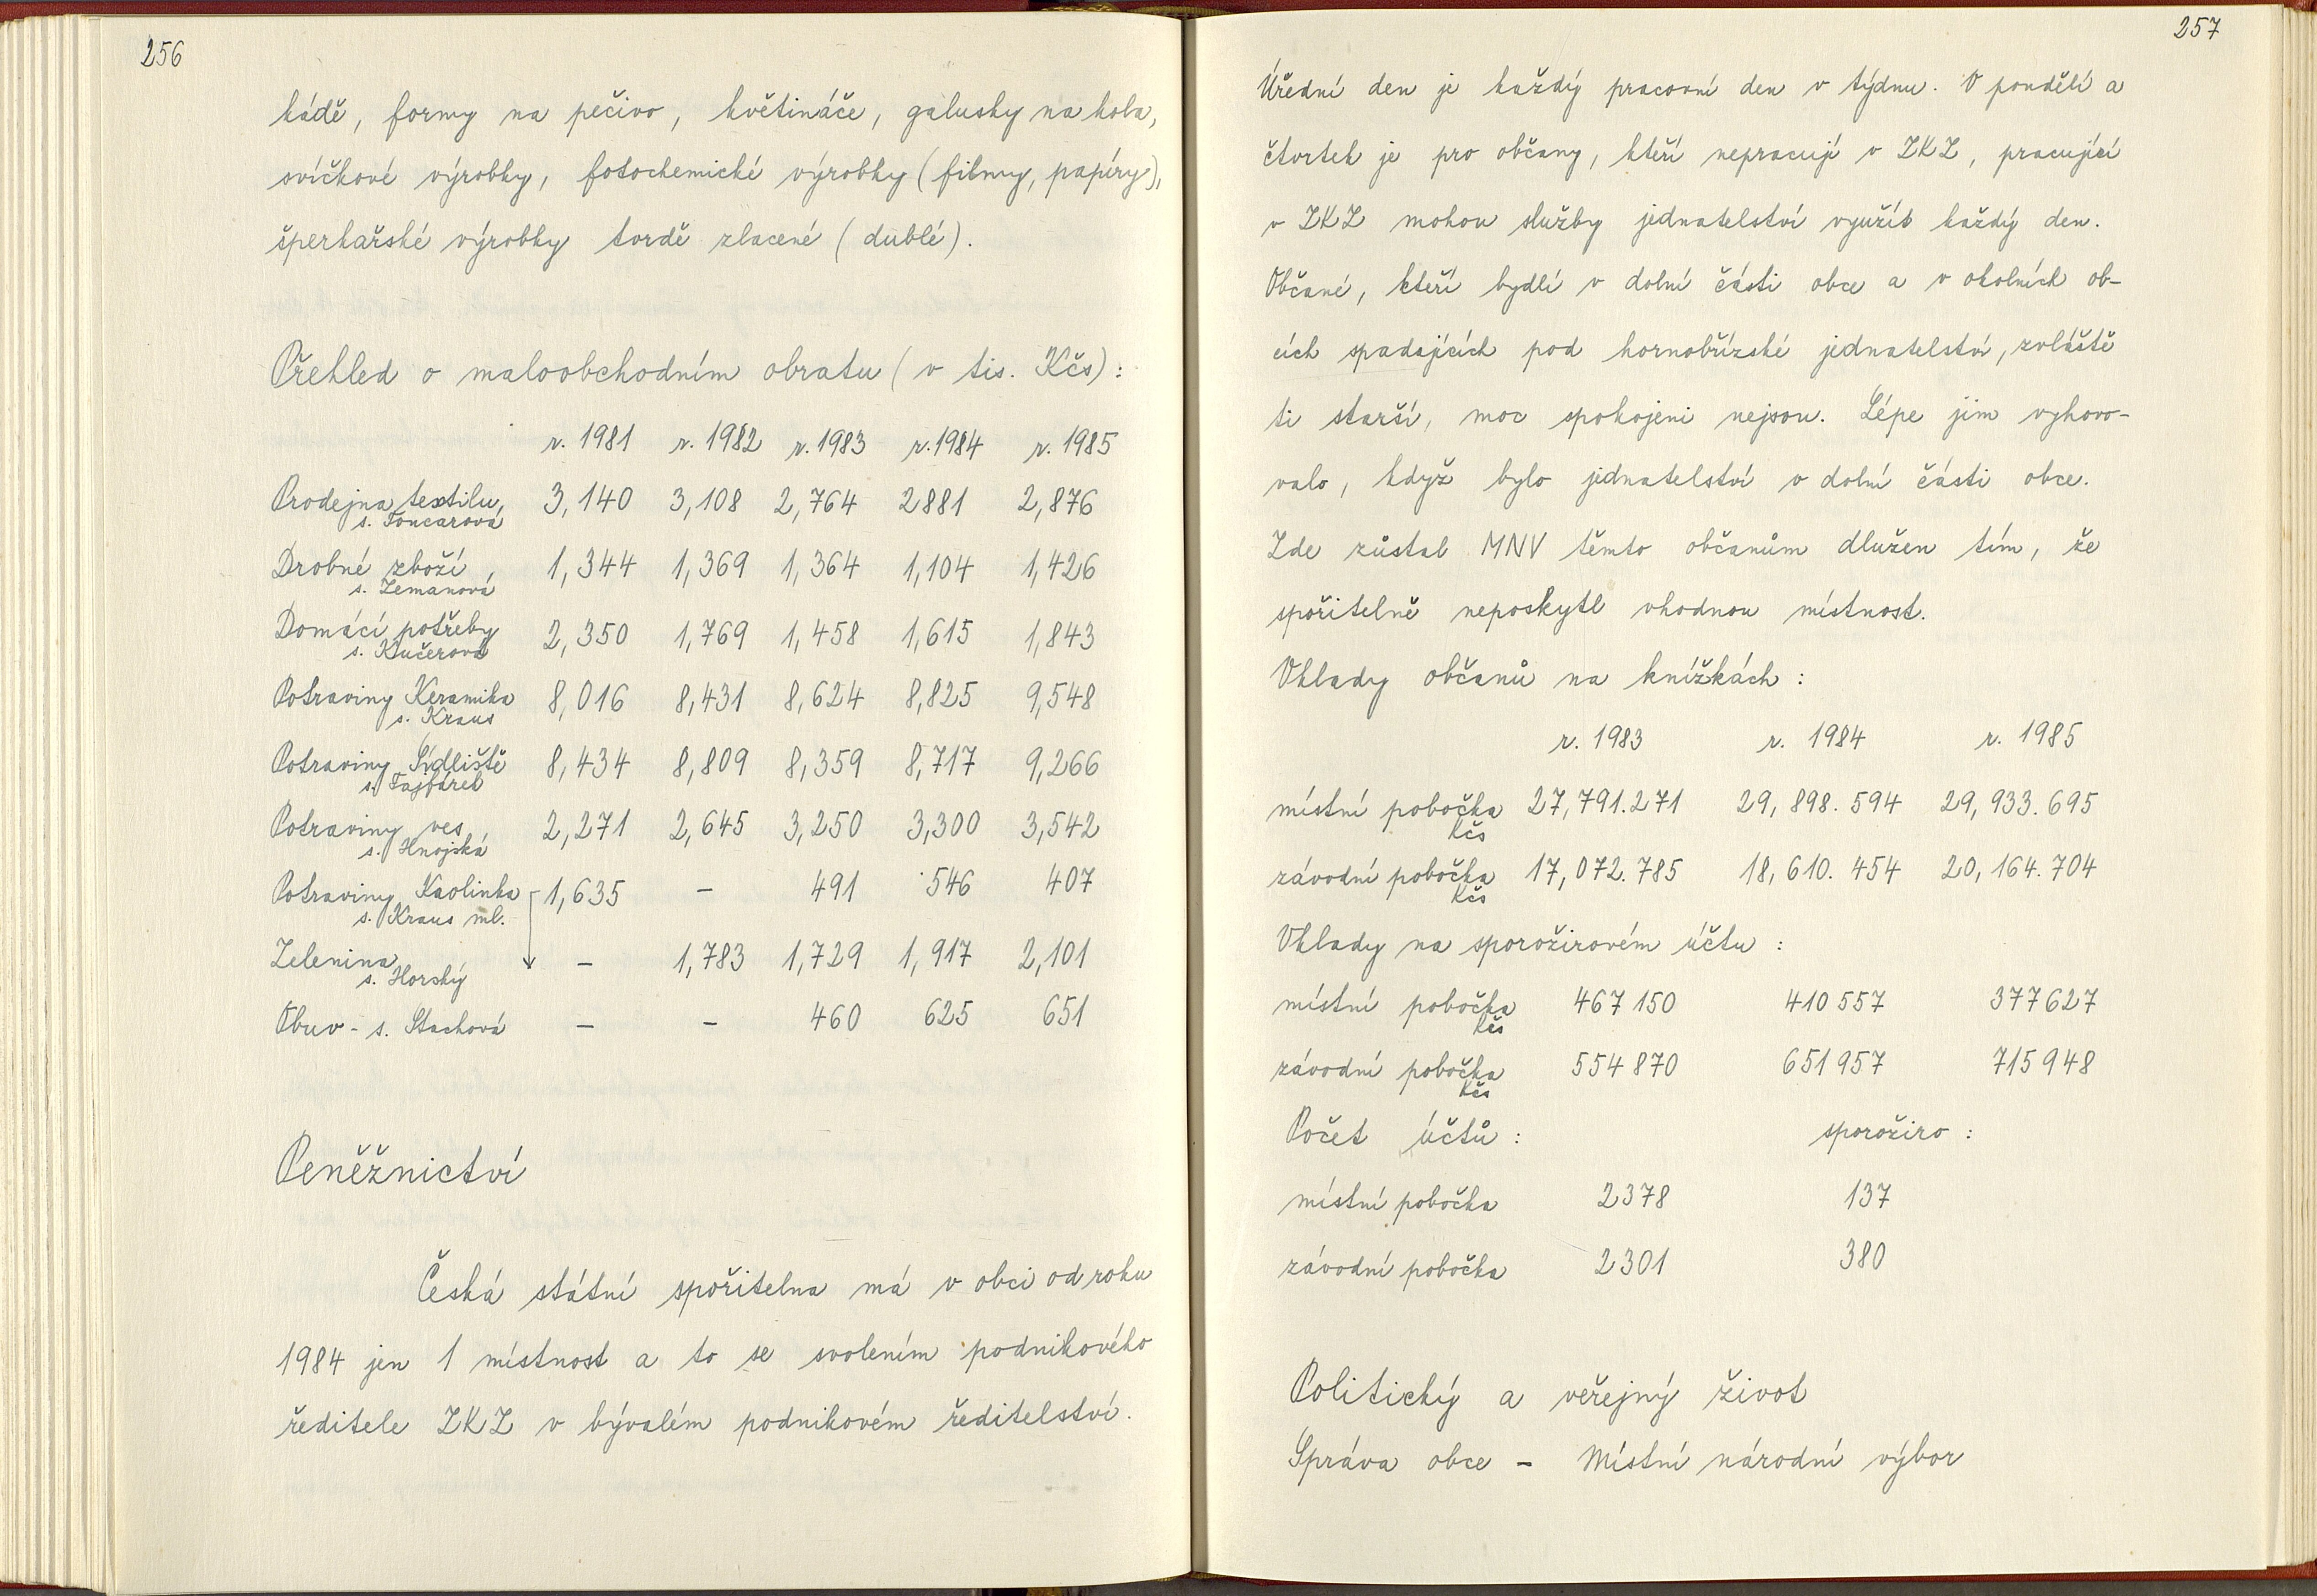 256
kádě, formy na pečivo, květináče, galusky na kola,
svíčkové výrobky, fotochemické výrobky (filmy, papíry),
šperkařské výrobky tvrdě zlacené (dublé).
Přehled o maloobchodním obratu (v tis. Kčs):
r. 1981 r. 1982 r. 1983 r. 1984 r. 1985
Prodejna textilu, 3,140 3,108 2,764 2881 2,876
s. Toncarová
Drobné zboží, 1,344 1,369 1,364 1,104 1,426
s. Zemanová
Domácí potřeby 2,350 1,769 1,458 1,615 1,843
s. Kučerová
Potraviny Keramika 8,016 8,431 8,624 8,825 9,548
s. Kraus
Potraviny Sídliště 8,434 8,809 8,359 8,717 9,266
s.
Potraviny ves, 2,271 2,645 3,250 3,300 3,542
s. Hnojská
Potraviny Kaolinka 1,635 – 491 546 407
s. Kraus ml.
Zelenina – 1,783 1,729 1,917 2,101
s. Horský
Obuv - s. Stachová – – 460 625 651
Peněžnictví
Česká státní spořitelna má v obci od roku
1984 jen 1 místnost a to se svolením podnikového
ředitele ZKZ v bývalém podnikovém ředitelství.
257
Úřední den je každý pracovní den v týdnu. V pondělí a
čtvrtek je pro občany, kteří nepracují v ZKZ, pracující
v ZKZ mohou služby jednatelství využít každý den.
Občané, kteří bydlí v dolní části obce a v okolních ob-
cích spadajících pod hornobřízské jednatelství, zvláště
ti starší, moc spokojeni nejsou. Lépe jim vyhovo-
valo, když bylo jednatelství v dolní části obce.
Zde zůstal MNV těmto občanům dlužen tím, že
spořitelně neposkytl vhodnou místnost.
Vklady občanů na knížkách:
r. 1983 r. 1984 r. 1985
místní pobočka 27,791.271 29,898.594 29,933.695
Kčs
závodní pobočka 17,072.785 18,610.454 20,164.704
Kčs
Vklady na sporožirovém účtu:
místní pobočka 467 150 410 557 377 627
Kčs
závodní pobočka 554 870 651 957 715 948
Kčs
Počet účtů: sporožiro:
místní pobočka 2378 137
závodní pobočka 2301 380
Politický a veřejný život
Správa obce – Místní národní výbor